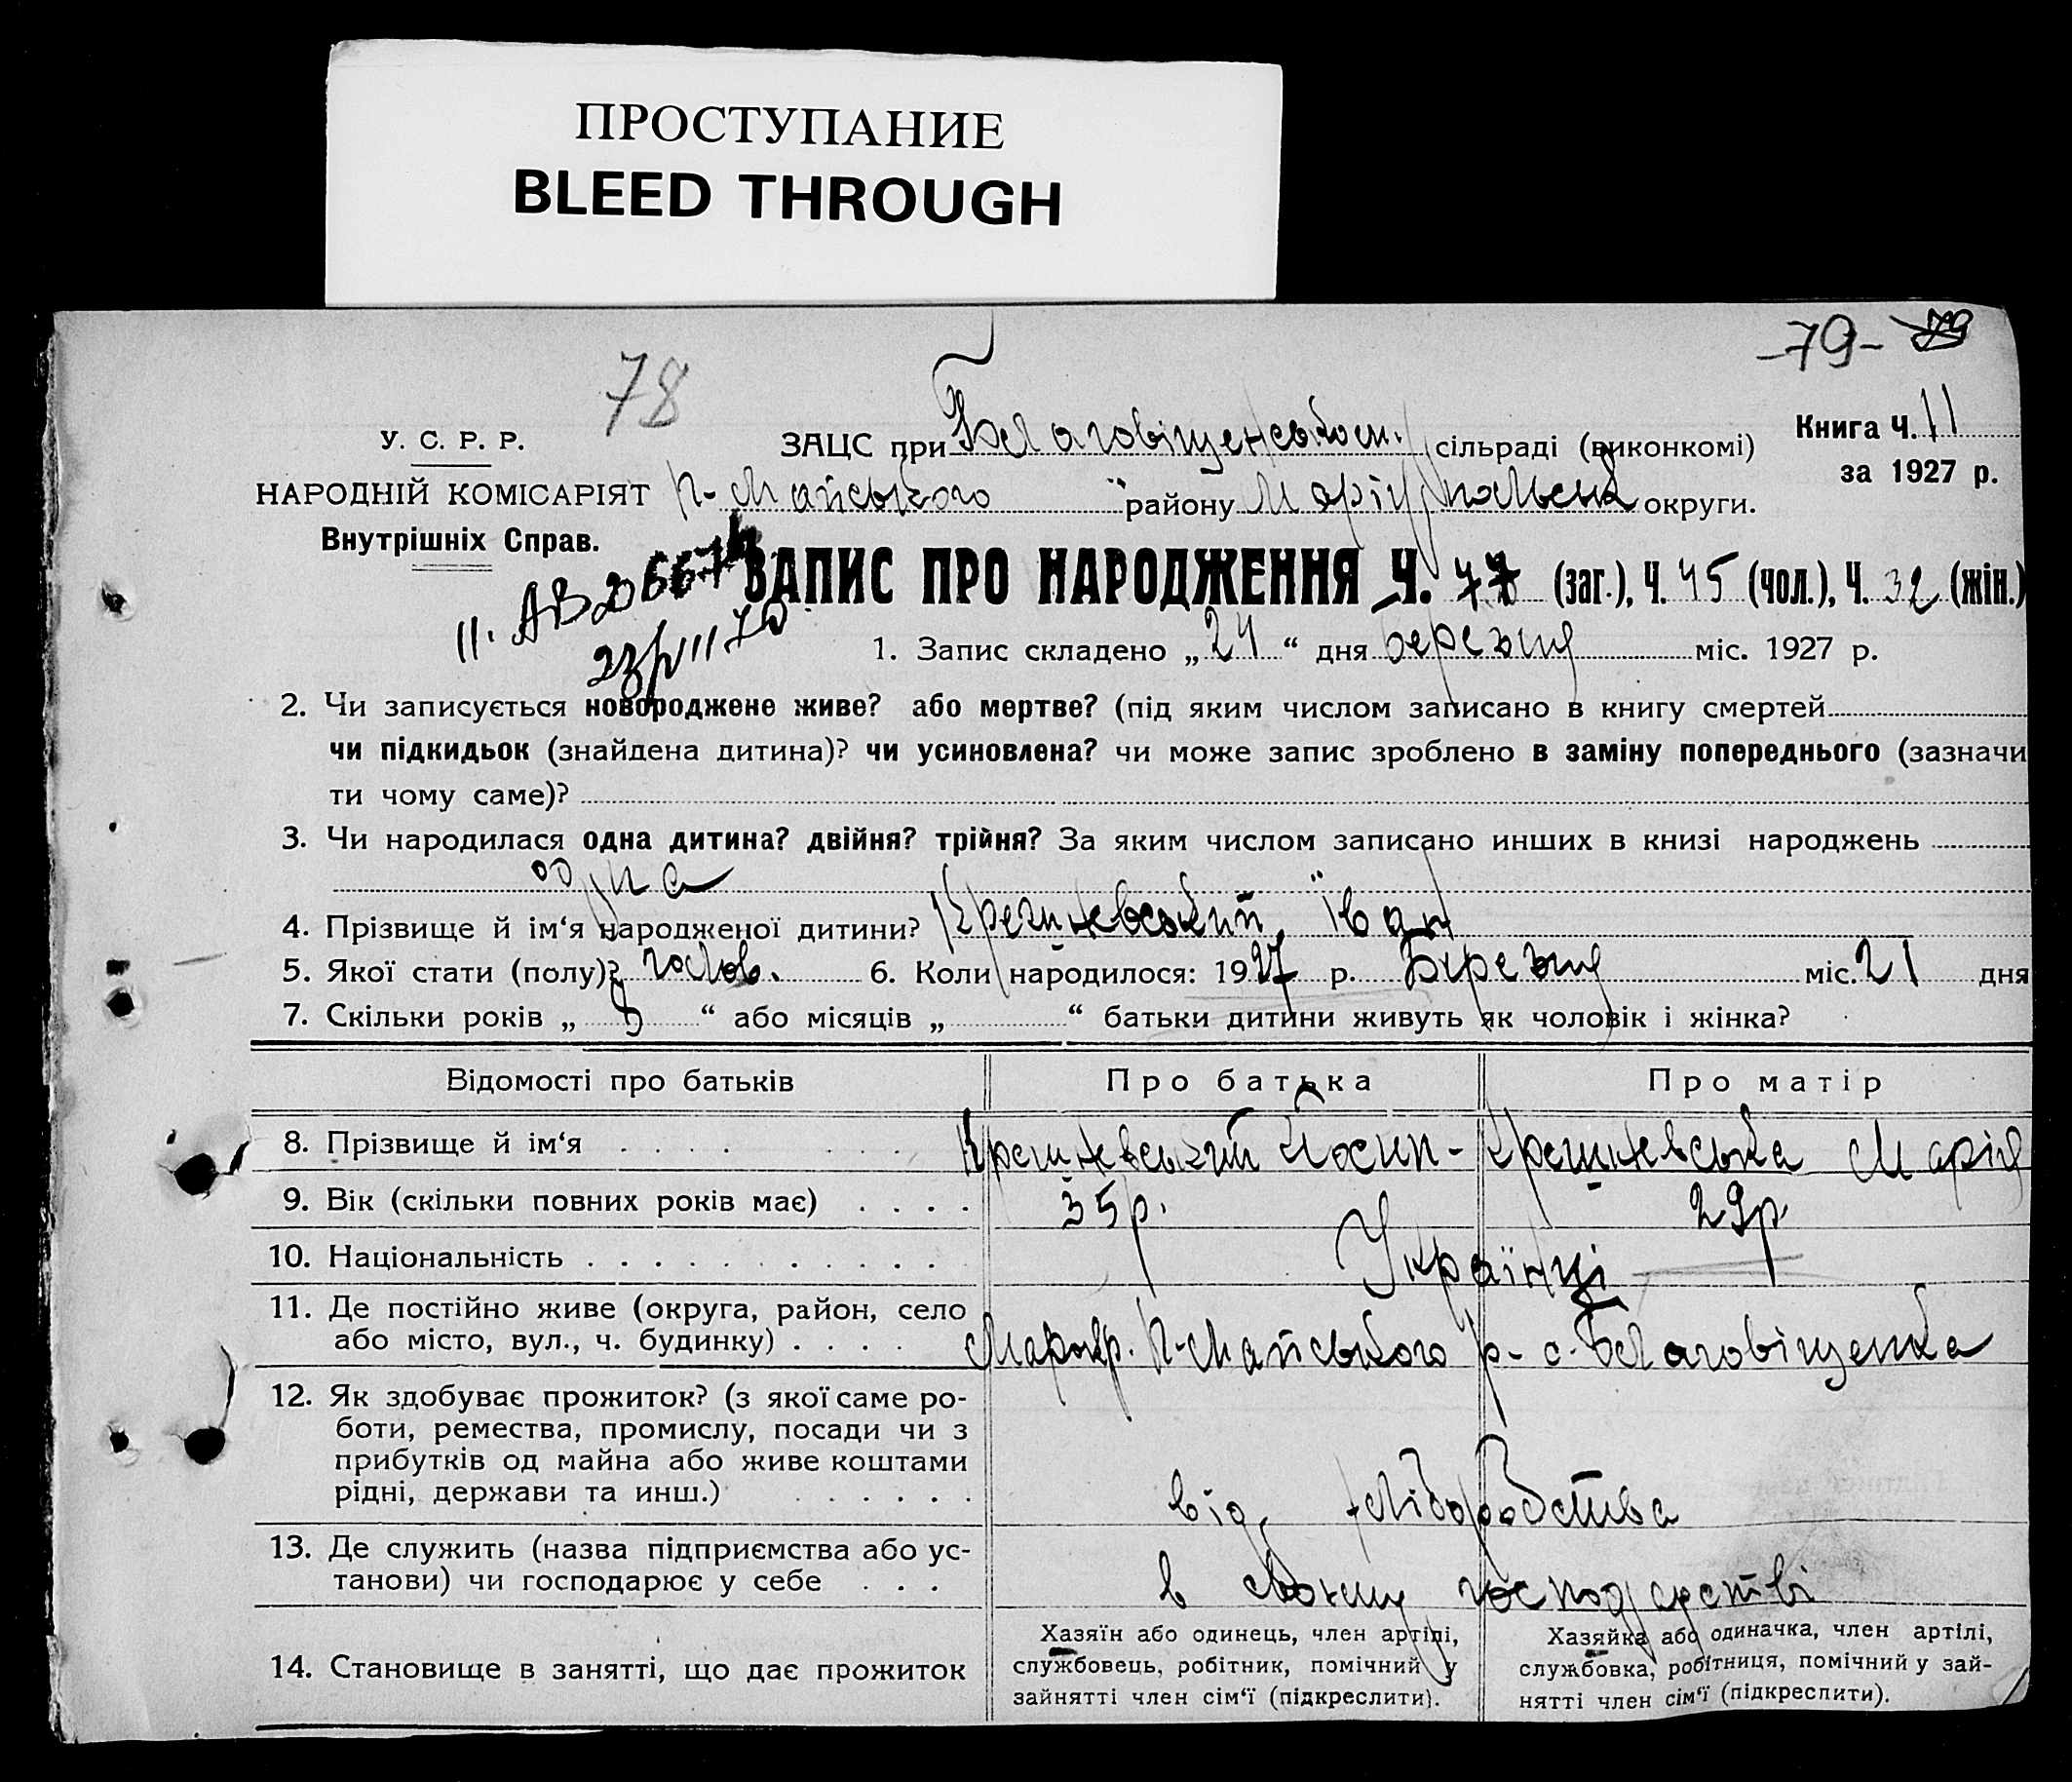 ПРОСТУПАНИЕ
BLEED THROUGH
-79-
78
У. С. Р. Р.
НАРОДНІЙ КОМІСАРІЯТ
Внутрішніх Справ.
ЗАЦС при Благовіщенськом. сільраді (виконкомі)
п-Майського району Маріупольськ округи.
Книга Ч. 11
за 1927 р.
ЗАПИС ПРО НАРОДЖЕННЯ Ч. 77 (заг.), Ч. 45 (чол.), Ч. 32 (жін.)
1. Запис складено „ 24 “ дня березня міс. 1927 р.
2. Чи записується новороджене живе? або мертве? (під яким числом записано в книгу смертей
чи підкидьок (знайдена дитина)? чи усиновлена? чи може запис зроблено в заміну попереднього (зазначи
ти чому саме)?
3. Чи народилася одна дитина? двійня? трійня? За яким числом записано инших в книзі народжень
одна
4. Прізвище й ім‘я народженої дитини? Іван
5. Якої стати (полу)? чолов. 6. Коли народилося: 1927 р. Березня міс. 21 дня
7. Скільки років „ “ або місяців „ “ батьки дитини живуть як чоловік і жінка?
Відомості про батьків Про батька Про матір
8. Прізвище й ім‘я Йосип - Марія
9. Вік (скільки повних років має) 35р. 29р.
10. Національність Українці
11. Де постійно живе (округа, район, село
або місто, вул., ч. будинку) п-Майського р- с. Благовіщенка
12. Як здобуває прожиток? (з якої саме ро-
боти, ремества, промислу, посади чи з
прибутків од майна або живе коштами
рідні, держави та инш.) від хліборобства
13. Де служить (назва підприємства або ус-
танови) чи господарює у себе в своєму господарстві
14. Становище в занятті, що дає прожиток
Хазяїн або одинець, член артілі,
службовець, робітник, помічний у
зайнятті член сім‘ї (підкреслити).
Хазяйка або одиначка, член артілі,
службовка, робітниця, помічний у зай-
нятті член сім‘ї (підкреслити).